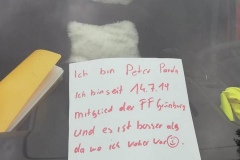 Ich bin Peter Panda
Ich bin seit 14.7.19
mitglied der FF Grünburg
und es ist besser als
da wo ich vorher war ☺.